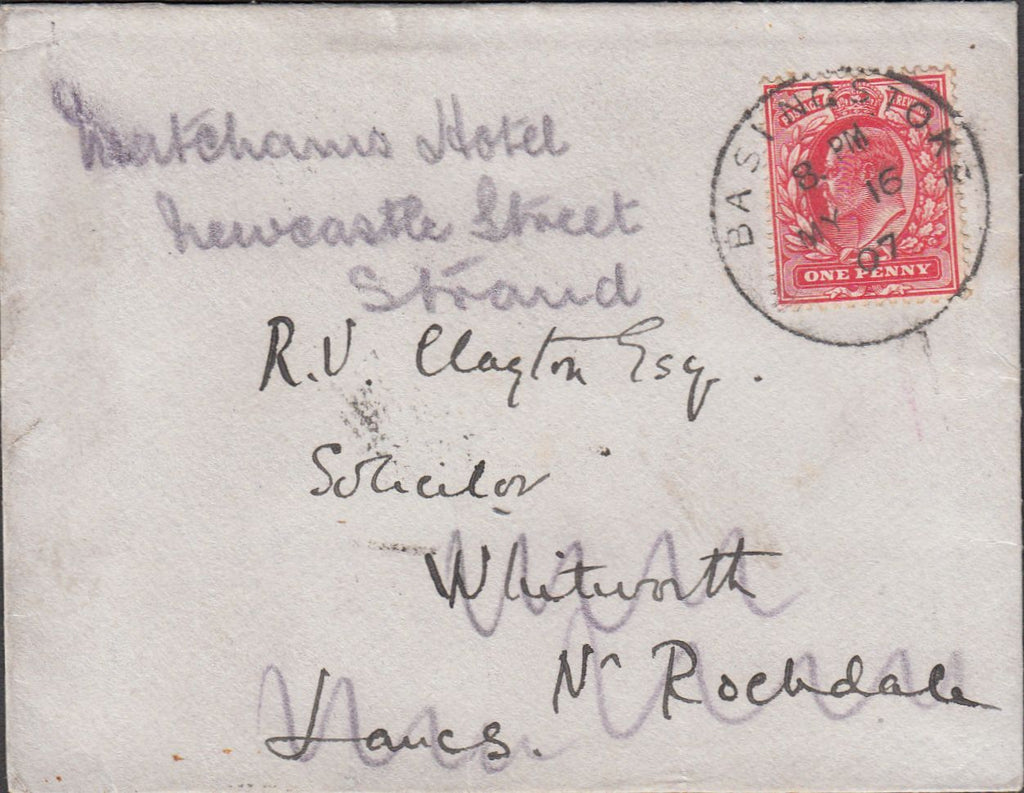 Matchams Hotel
Newcastle Street
Strand
BASINGSTOKE
8 PM
MY 16
07
POSTAGE REVENUE
ONE PENNY
R. V. Clayton Esq.
Solicitor
Whitworth
Nr Rochdale
Lancs.